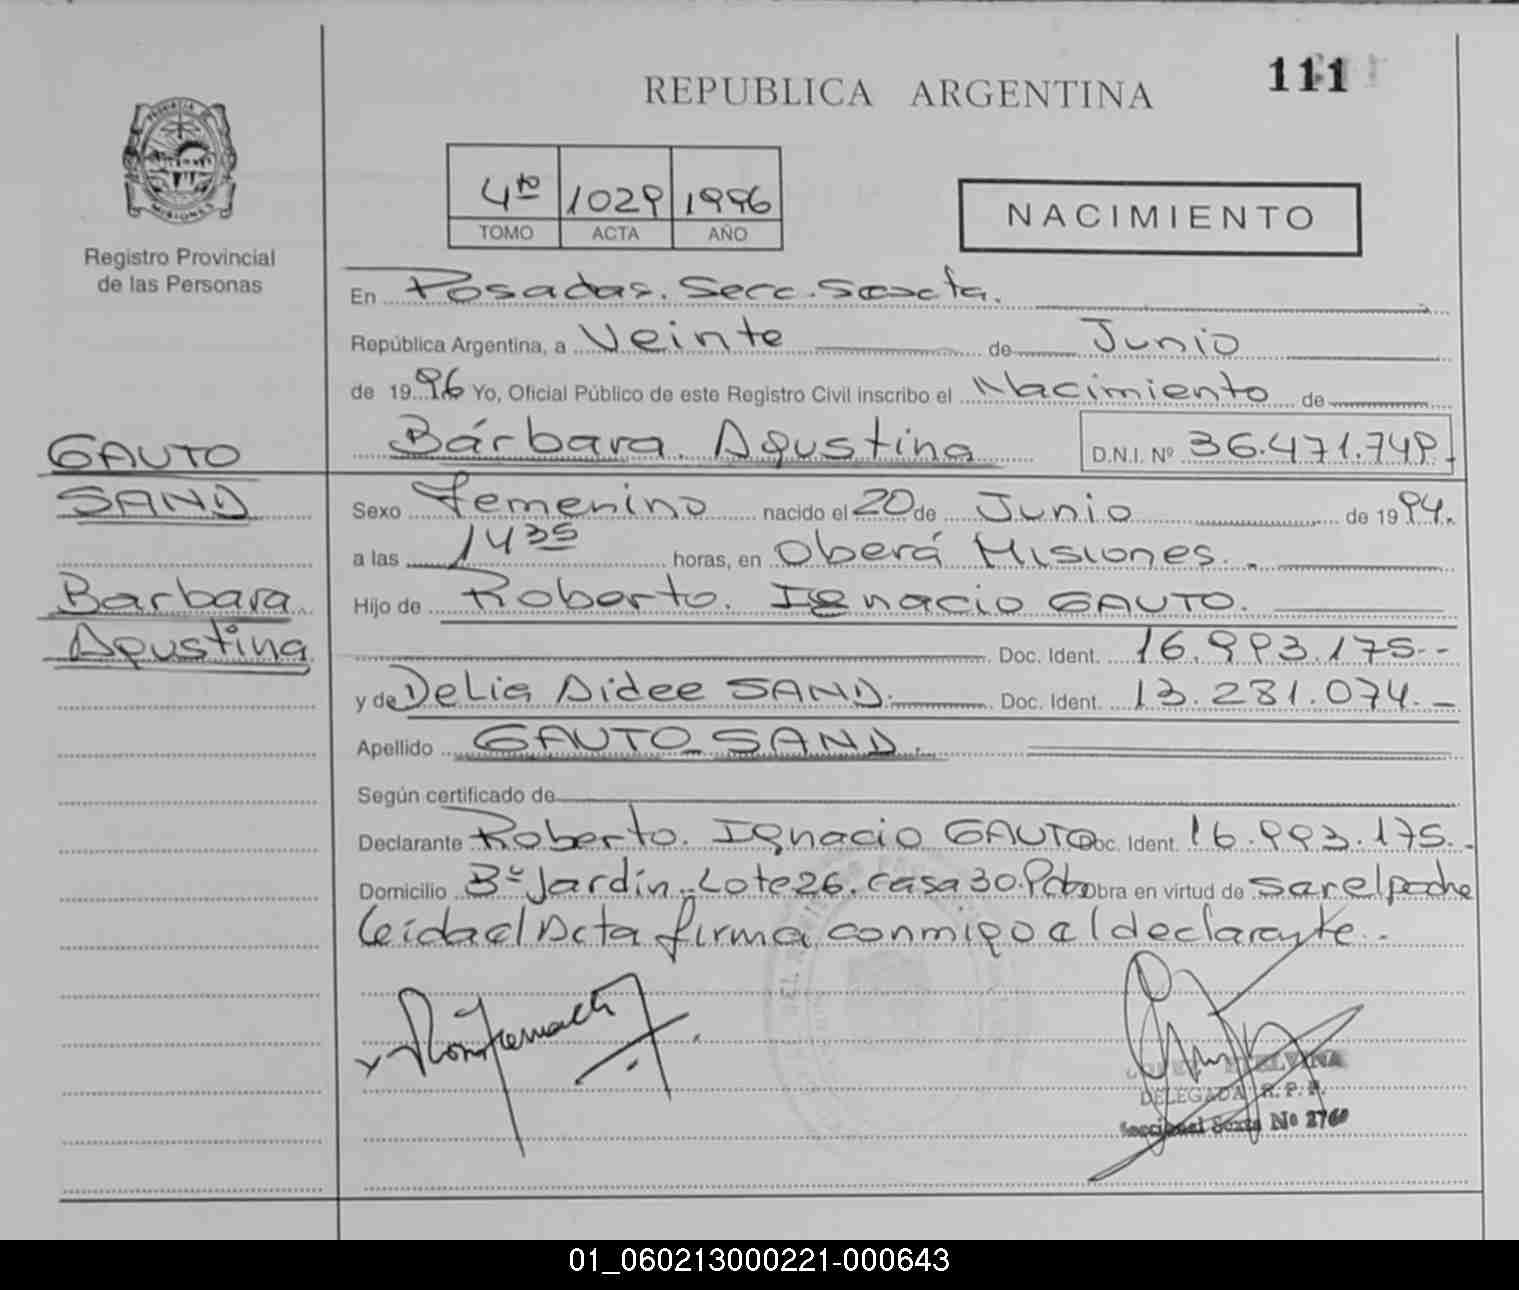 REPUBLICA ARGENTINA
111
PROVINCIA DE
MISIONES
Registro Provincial
de las Personas
4to 1029 1996
TOMO ACTA AÑO
NACIMIENTO
En Posadas. Secc. Sexta.
República Argentina, a Veinte de Junio
de 1996 Yo, Oficial Público de este Registro Civil inscribo el Nacimiento de
GAUTO
SAND
Barbara
Agustina
Bárbara Agustina D.N.I. Nº 36.471.749.
Sexo Femenino nacido el 20 de Junio de 1994.
a las 14 35 horas, en Oberá Misiones.
Hijo de Roberto. Ignacio GAUTO.
Doc. Ident. 16.993.175--
y de Delia Aidee SAND. Doc. Ident. 13.281.074.-
Apellido GAUTO SAND.
Según certificado de
Declarante Roberto. Ignacio GAUTO Doc. Ident. 16.993.175.-
Domicilio Bº Jardín. Lote 26. Casa 30. Obra en virtud de ser el padre
leida el Acta firma conmigo el declarante.-
DELEGADA R. P. P.
Seccional Sexta Nº 2760
01_060213000221-000643